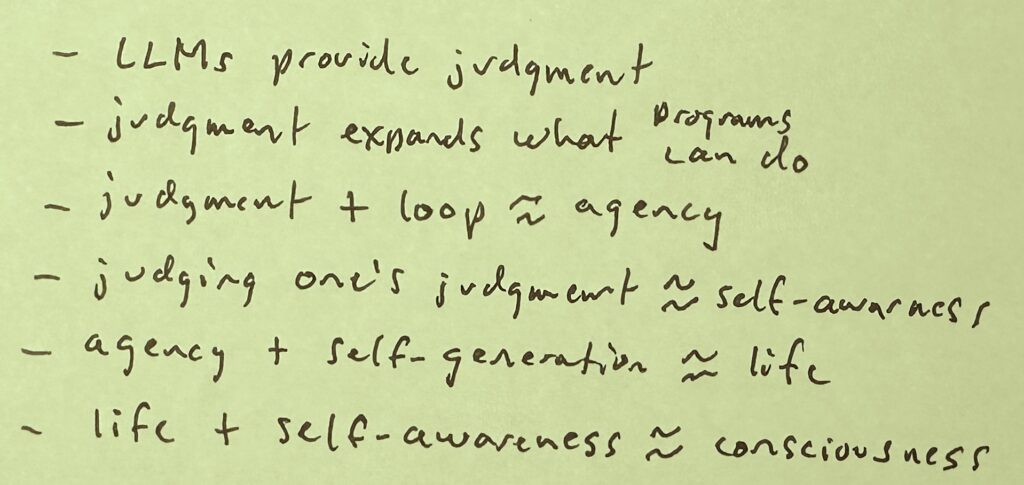 - LLMs provide judgment
- judgment expands what programs can do
- judgment + loop ≈ agency
- judging one's judgment ≈ self-awarness
- agency + self-generation ≈ life
- life + self-awareness ≈ consciousness